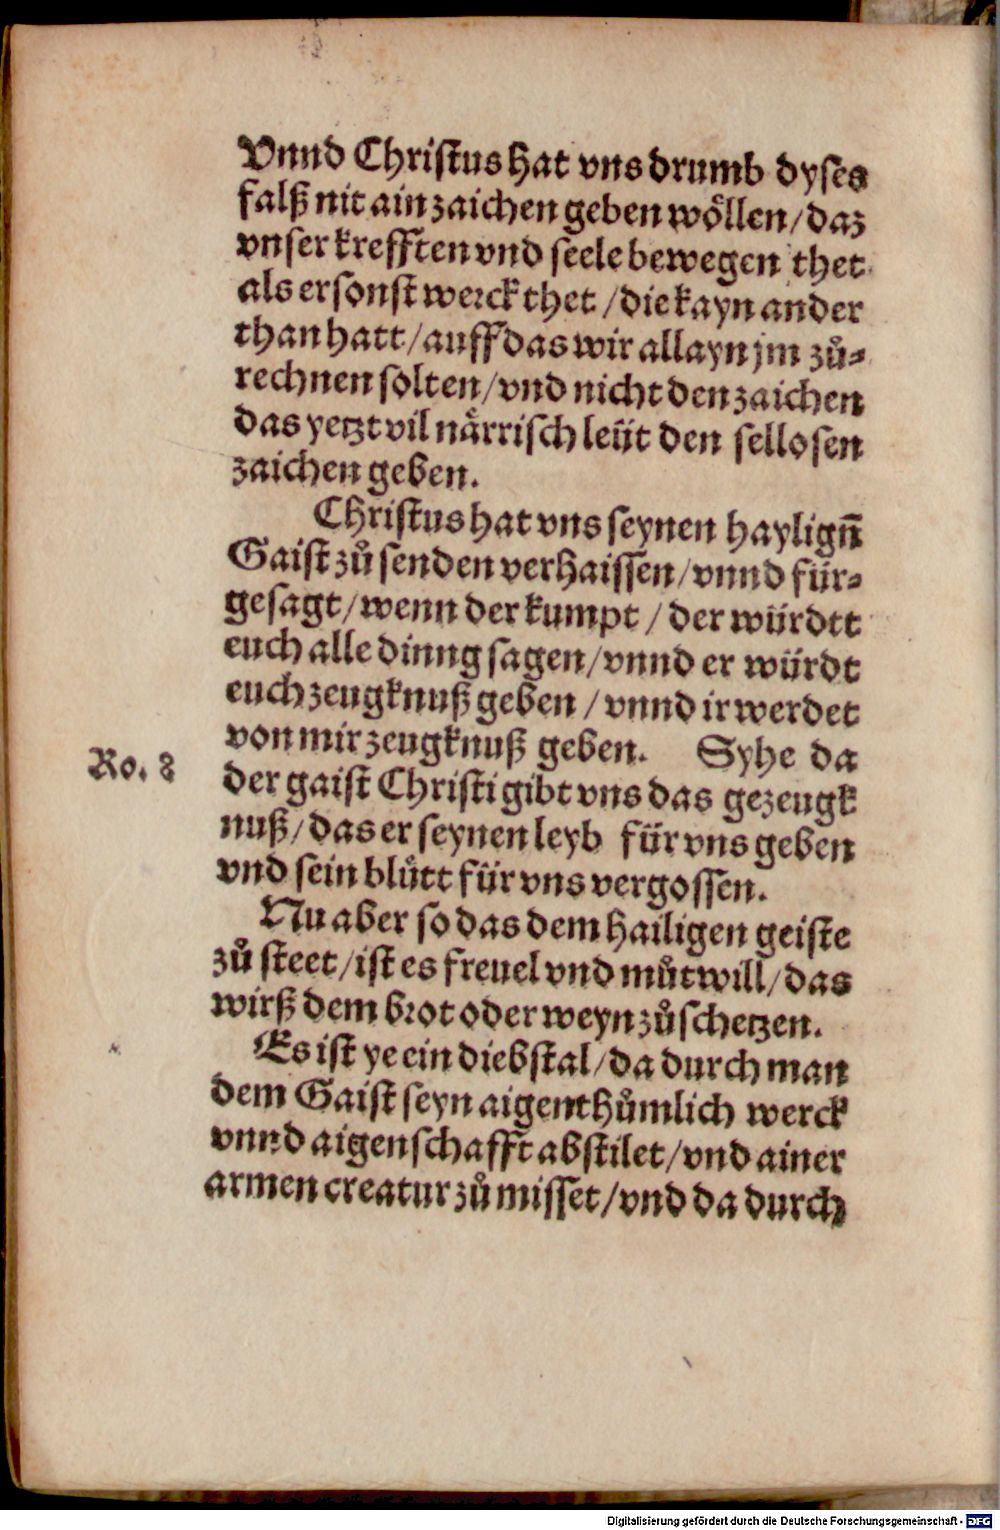 Vnnd Christus hat vns drumb dyses
falß nit ain zaichen geben wöllen / daz
vnser krefften vnd seele bewegen thet
als er sonst werck thet / die kayn ander
than hatt / auff das wir allayn jm zů-
rechnen solten / vnd nicht den zaichen
das yetzt vil närrisch leüt den sellosen
zaichen geben.
Christus hat vns seynen hayligñ
Gaist zů senden verhaissen / vnnd für-
gesagt / wenn der kumpt / der würdtt
euch alle dinng sagen / vnnd er würdt
euch zeugknuß geben / vnnd ir werdet
von mir zeugknuß geben. Syhe da
Ro. 8
der gaist Christi gibt vns das gezeugk
nuß / das er seynen leyb für vns geben
vnd sein blůtt für vns vergossen.
Nu aber so das dem hailigen geiste
zů steet / ist es freuel vnd můtwill / das
wirß dem brot oder weyn zů schetzen.
Es ist ye ein diebstal / da durch man
dem Gaist seyn aigenthůmlich werck
vnnd aigenschafft abstilet / vnd ainer
armen creatur zů misset / vnd da durch
Digitalisierung gefördert durch die Deutsche Forschungsgemeinschaft - DFG